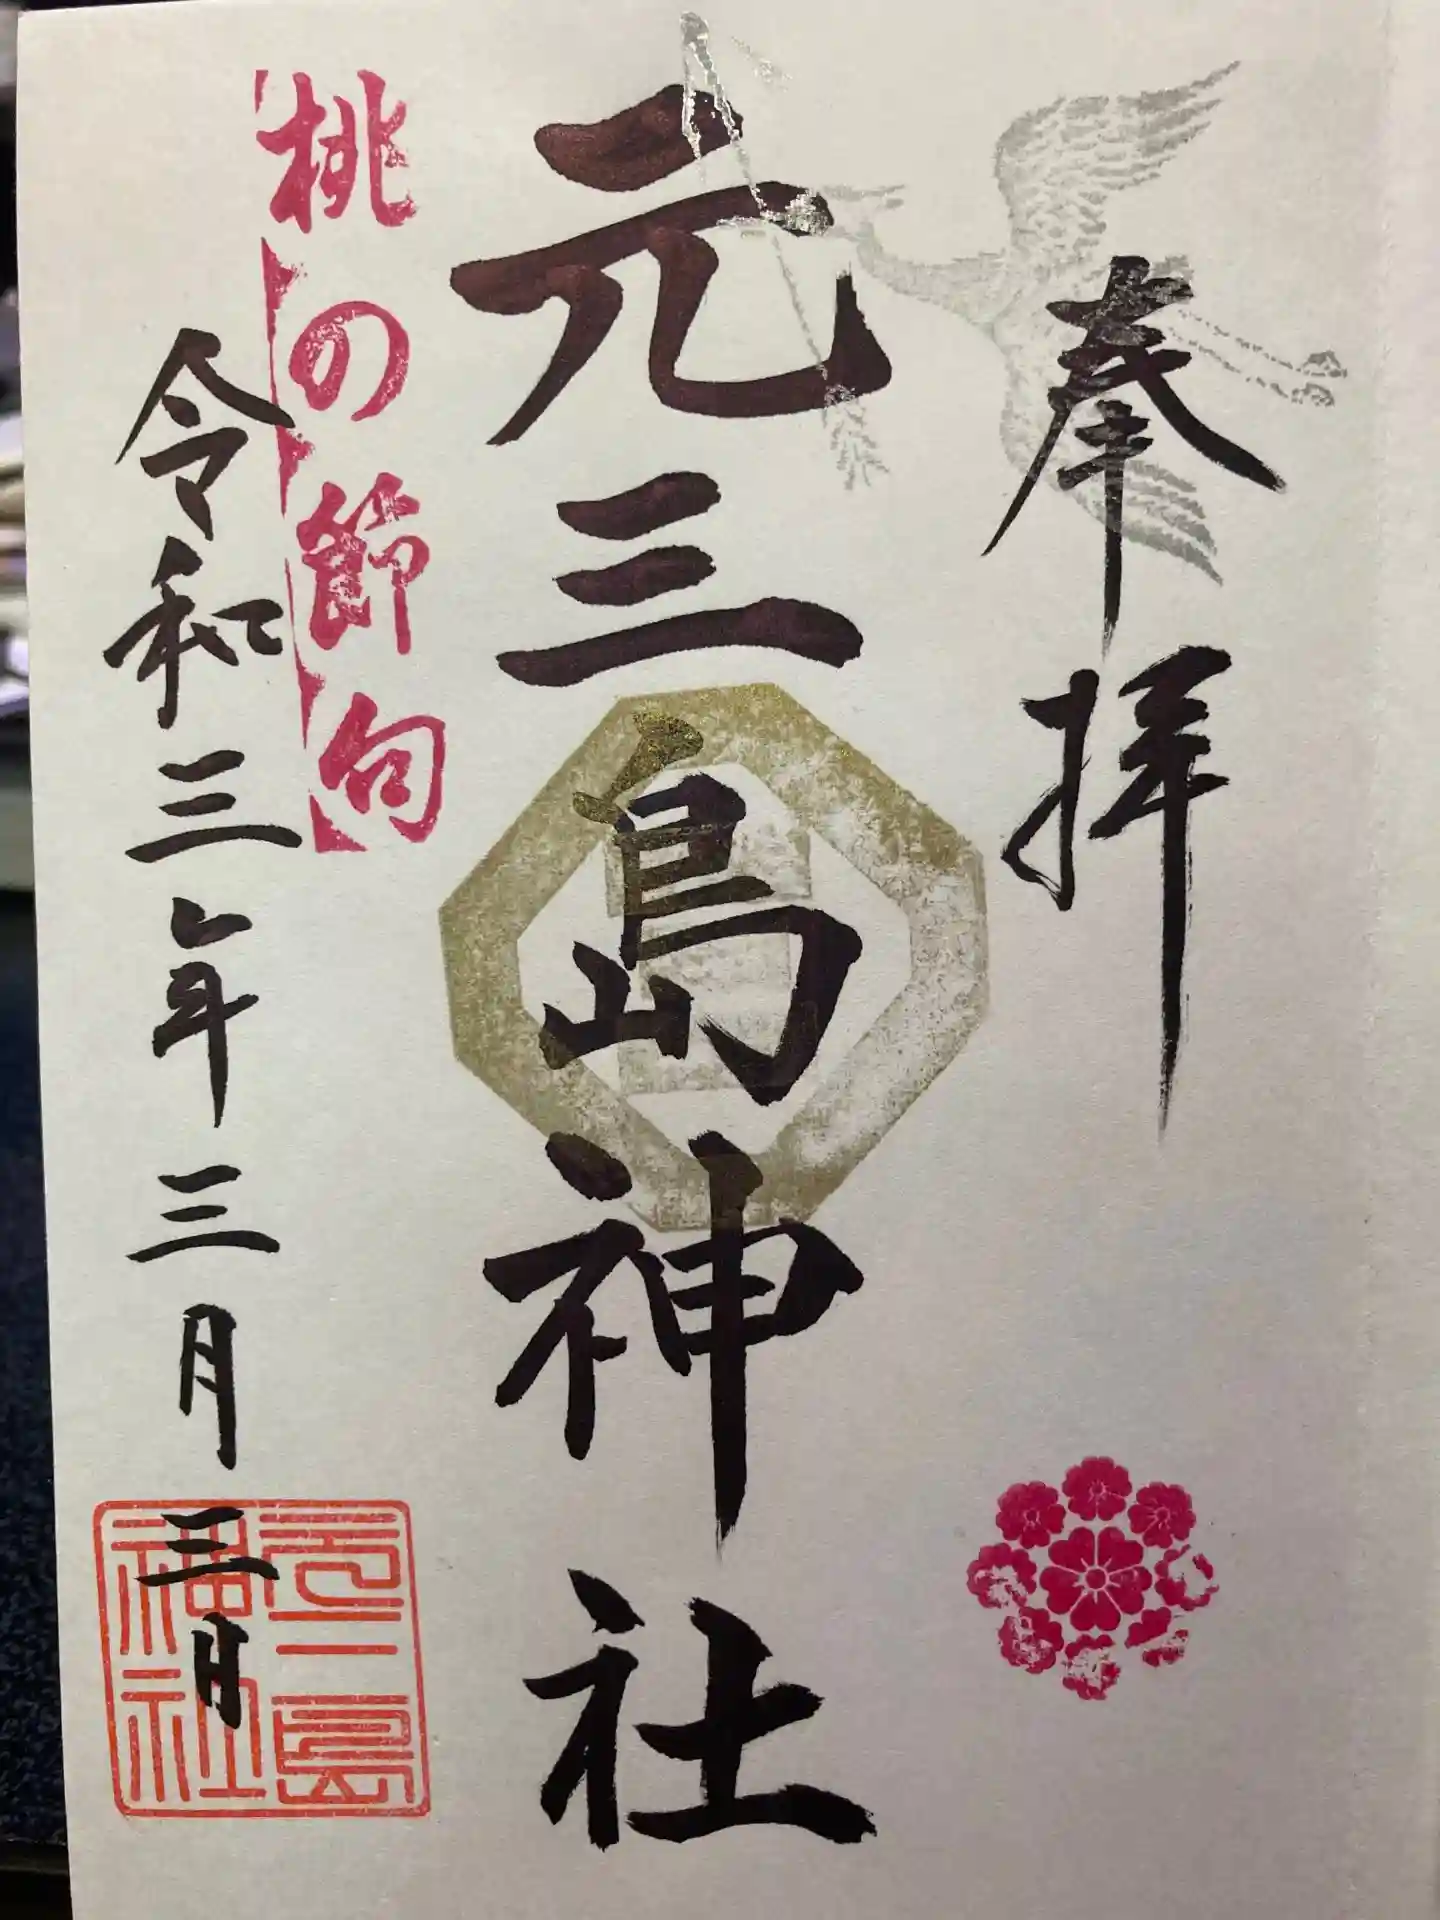 奉拝
元三島神社
桃の節句
令和三年三月三日
元三島
福社